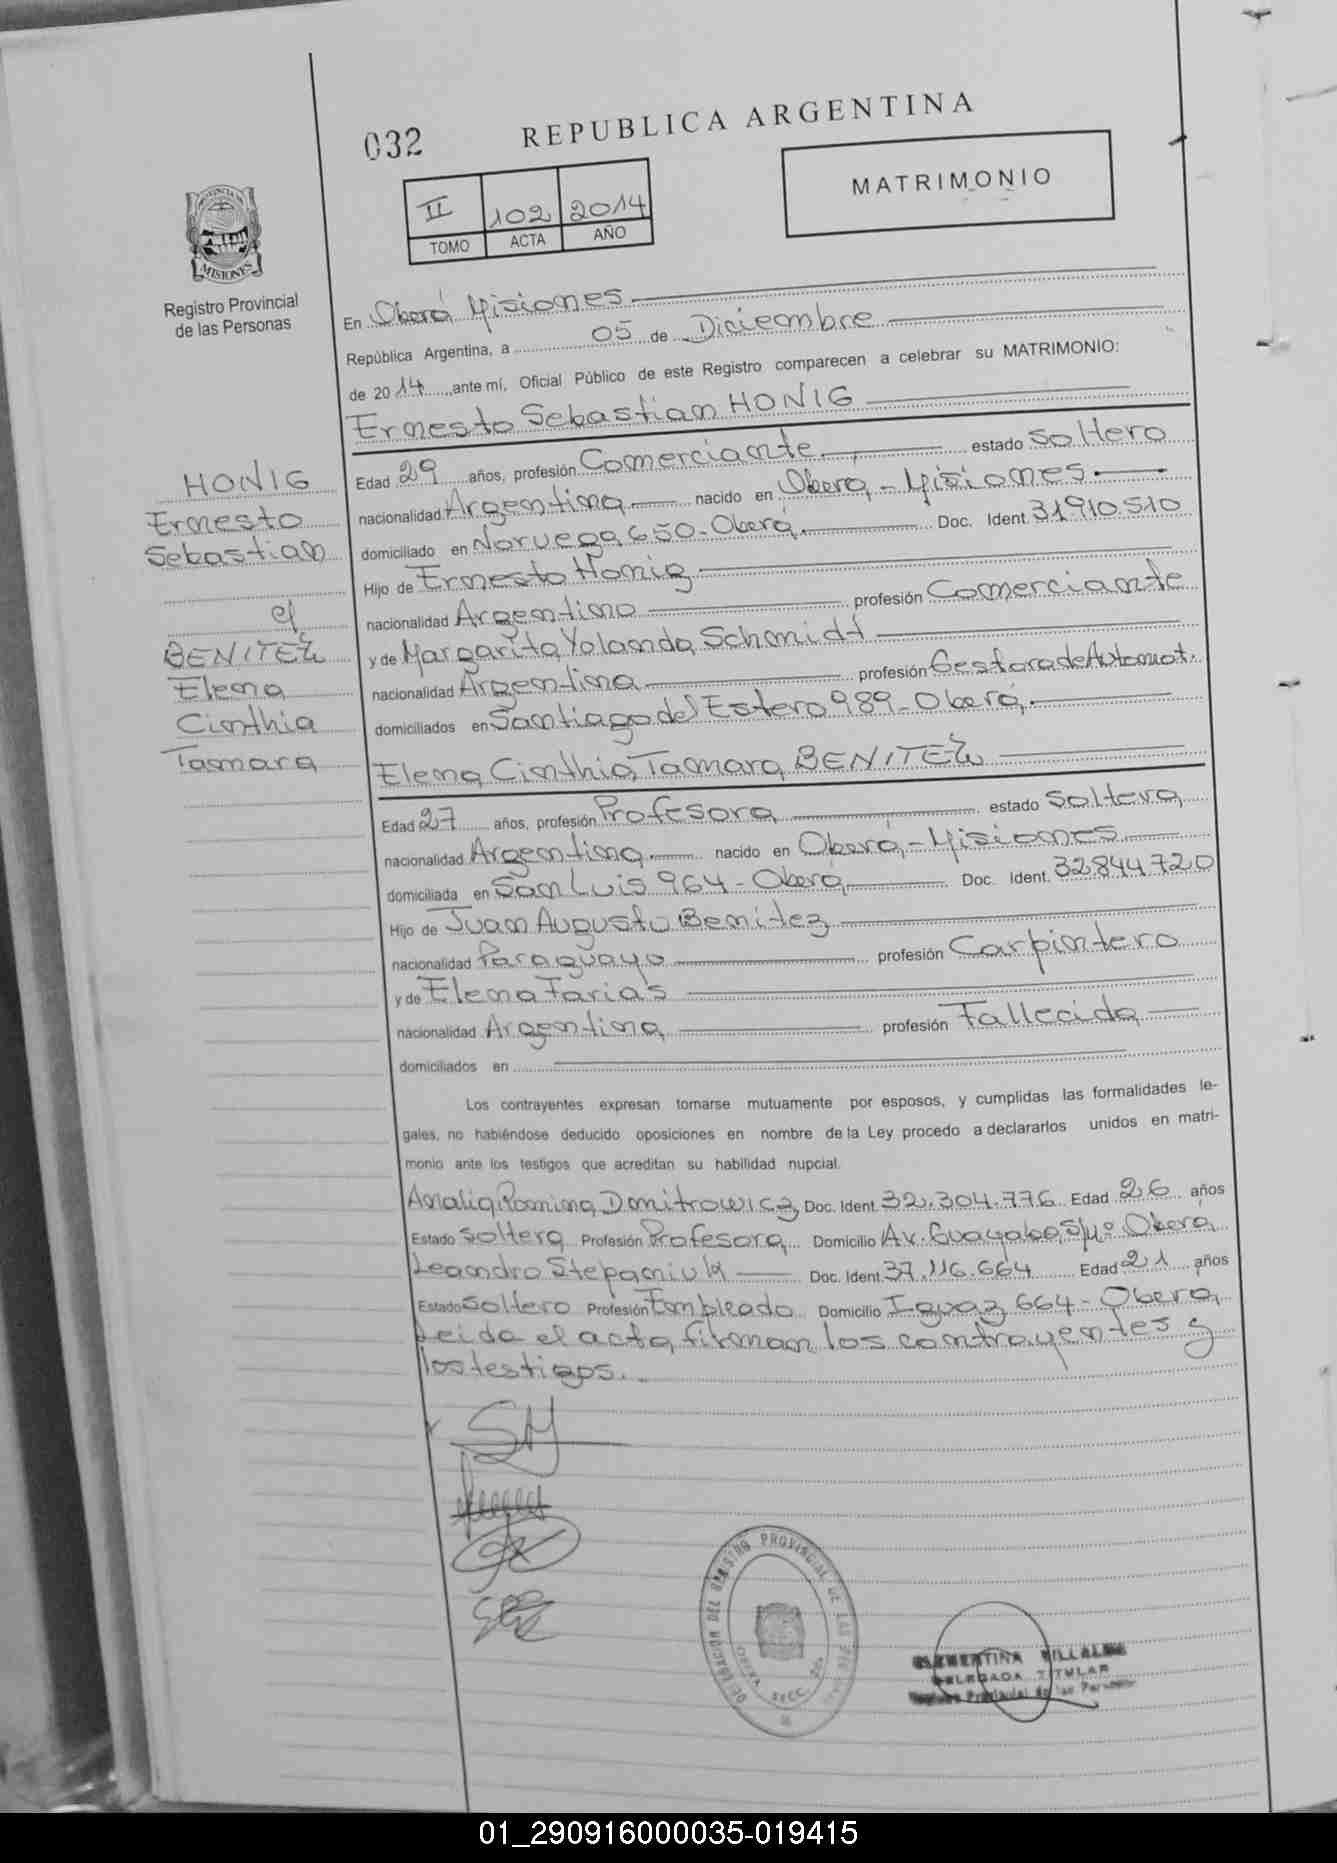 032
REPUBLICA ARGENTINA
MATRIMONIO
II 102 2014
TOMO ACTA AÑO
MISIONES
Registro Provincial
de las Personas
En Oberá Misiones
República Argentina, a 05 de Diciembre
de 2014 ante mí, Oficial Público de este Registro comparecen a celebrar su MATRIMONIO:
Ernesto Sebastian HONIG
Edad 29 años, profesión Comerciante estado Soltero
nacionalidad Argentina nacido en Oberá - Misiones
domiciliado en Noruega 650 - Oberá Doc. Ident. 31910.510
Hijo de Ernesto Honig
nacionalidad Argentino profesión Comerciante
y de Margarita Yolanda Schmidt
nacionalidad Argentina profesión Gestora de Automot.
domiciliados en Santiago del Estero 989 - Oberá
HONIG
Ernesto
Sebastian
c/
BENITEZ
Elena
Cinthia
Tamara
Elena Cinthia Tamara BENITEZ
Edad 27 años, profesión Profesora estado Soltera
nacionalidad Argentina nacido en Oberá - Misiones
domiciliada en San Luis 964 - Oberá Doc. Ident. 32844.720
Hijo de Juan Augusto Benitez
nacionalidad Paraguayo profesión Carpintero
y de Elena Farias
nacionalidad Argentina profesión Fallecida
domiciliados en
Los contrayentes expresan tomarse mutuamente por esposos, y cumplidas las formalidades le-
gales, no habiéndose deducido oposiciones en nombre de la Ley procedo a declararlos unidos en matri-
monio ante los testigos que acreditan su habilidad nupcial.
Analia Romina Dmitrowicz Doc. Ident. 32.304.776 Edad 26 años
Estado Soltera Profesión Profesora Domicilio Av. Guayabo S/Nº Oberá
Leandro Stepaniuk Doc. Ident. 37.116.664 Edad 21 años
Estado Soltero Profesión Empleado Domicilio Iguaz 664 - Oberá
Leida el acta firman los contrayentes y
los testigos.
DELEGACION DEL REGISTRO PROVINCIAL DE LAS
OBERA SECC.
CLEMENTINA VILLALBA
DELEGADA TITULAR
Registro Provincial de las Personas
01_290916000035-019415